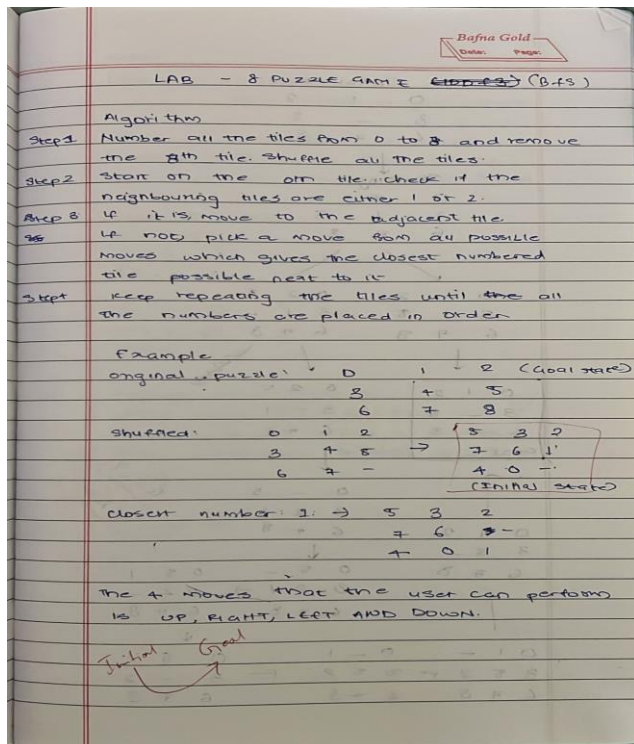 Bafna Gold
Date: Page:
LAB - 8 PUZZLE GAME (BFS)
Algorithm
Step 1 Number all the tiles from 0 to 8 and remove
the 8th tile. Shuffle all the tiles.
Step 2 Start on the 0th tile. check if the
neighbouring tiles are either 1 or 2.
Step 3 if it is, move to the adjacent tile
if not, pick a move from all possible
moves which gives the closest numbered
tile possible next to it
Step 4 Keep repeating the tiles until all
the numbers are placed in order
Example
original puzzle: 0 1 2 (Goal state)
3 4 5
6 7 8
Shuffled: 0 1 2 5 3 2
3 4 5 → 7 6 1
6 7 - 4 0 -
(Initial state)
closest number: 1: → 5 3 2
7 6 -
4 0 1
The 4 moves that the user can perform
is UP, RIGHT, LEFT AND DOWN.
Initial Goal